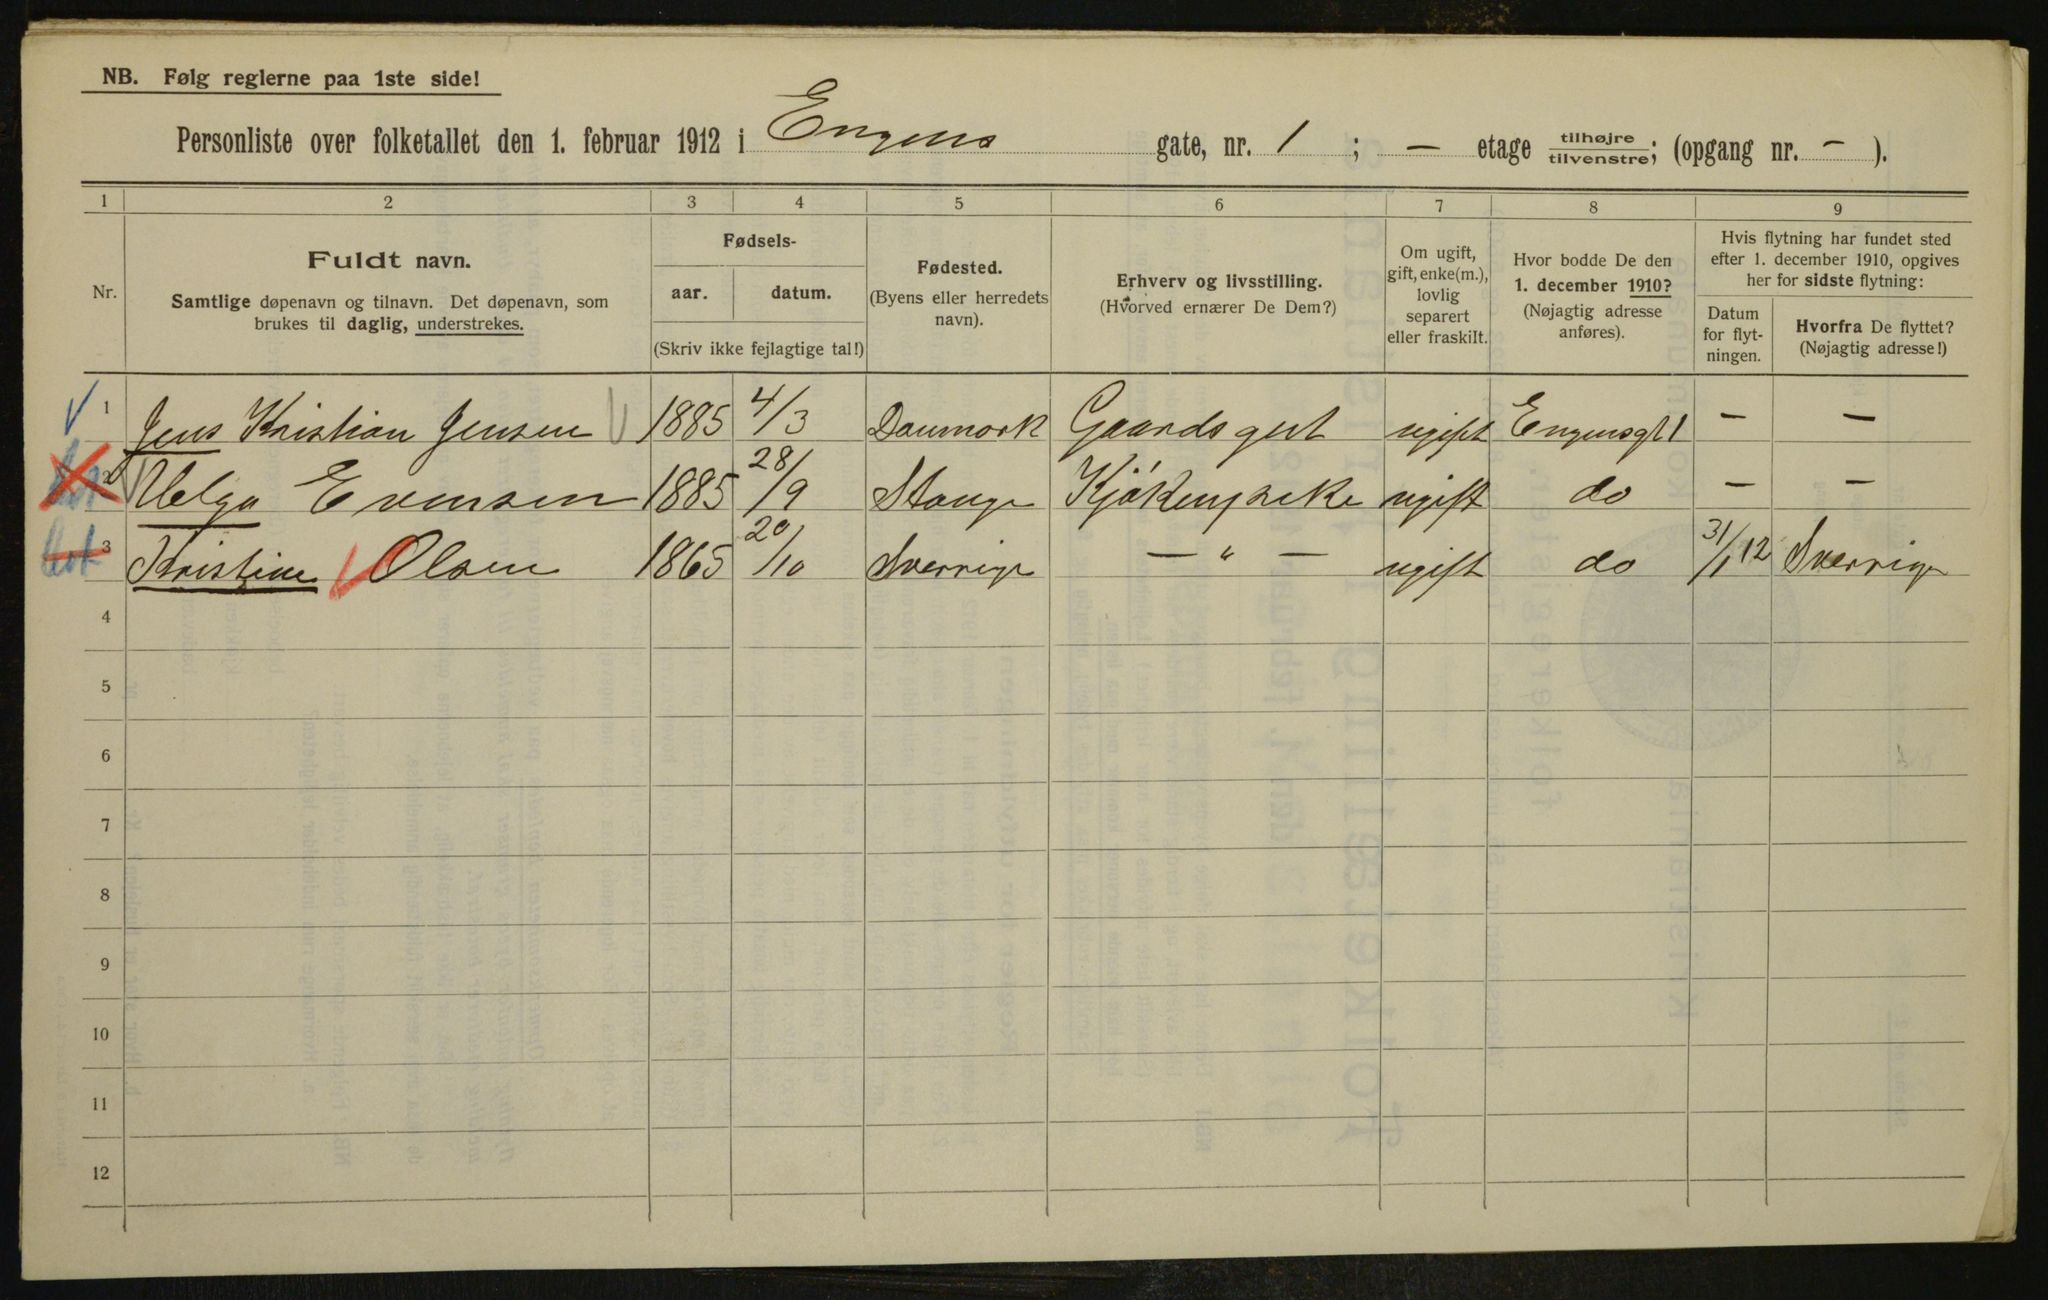 NB. Følg reglerne paa 1ste side!
Personliste over folketallet den 1. februar 1912 i Engens gate, nr. 1 ; — etage tilhøjre/tilvenstre; (opgang nr. - ).
1 2 3 4 5 6 7 8 9
Nr.
Fuldt navn.
Samtlige døpenavn og tilnavn. Det døpenavn, som
brukes til daglig, understrekes.
Fødsels-
aar. datum.
(Skriv ikke fejlagtige tal!)
Fødested.
(Byens eller herredets
navn).
Erhverv og livsstilling.
(Hvorved ernærer De Dem?)
Om ugift,
gift, enke(m.),
lovlig
separert
eller fraskilt.
Hvor bodde De den
1. december 1910?
(Nøjagtig adresse
anføres).
Hvis flytning har fundet sted
efter 1. december 1910, opgives
her for sidste flytning:
Datum
for flyt-
ningen.
Hvorfra De flyttet?
(Nøjagtig adresse!)
1 Jens Kristian Jensen 1885 4/3 Danmark Gaardsgut ugift Engensgt 1 — —
2 Helga Evensen 1885 28/9 Stange Kjøkenpike ugift do — —
3 Kristine Olsen 1865 20/10 Sverrige — " — ugift do 31/1 12 Sverrige
4
5
6
7
8
9
10
11
12